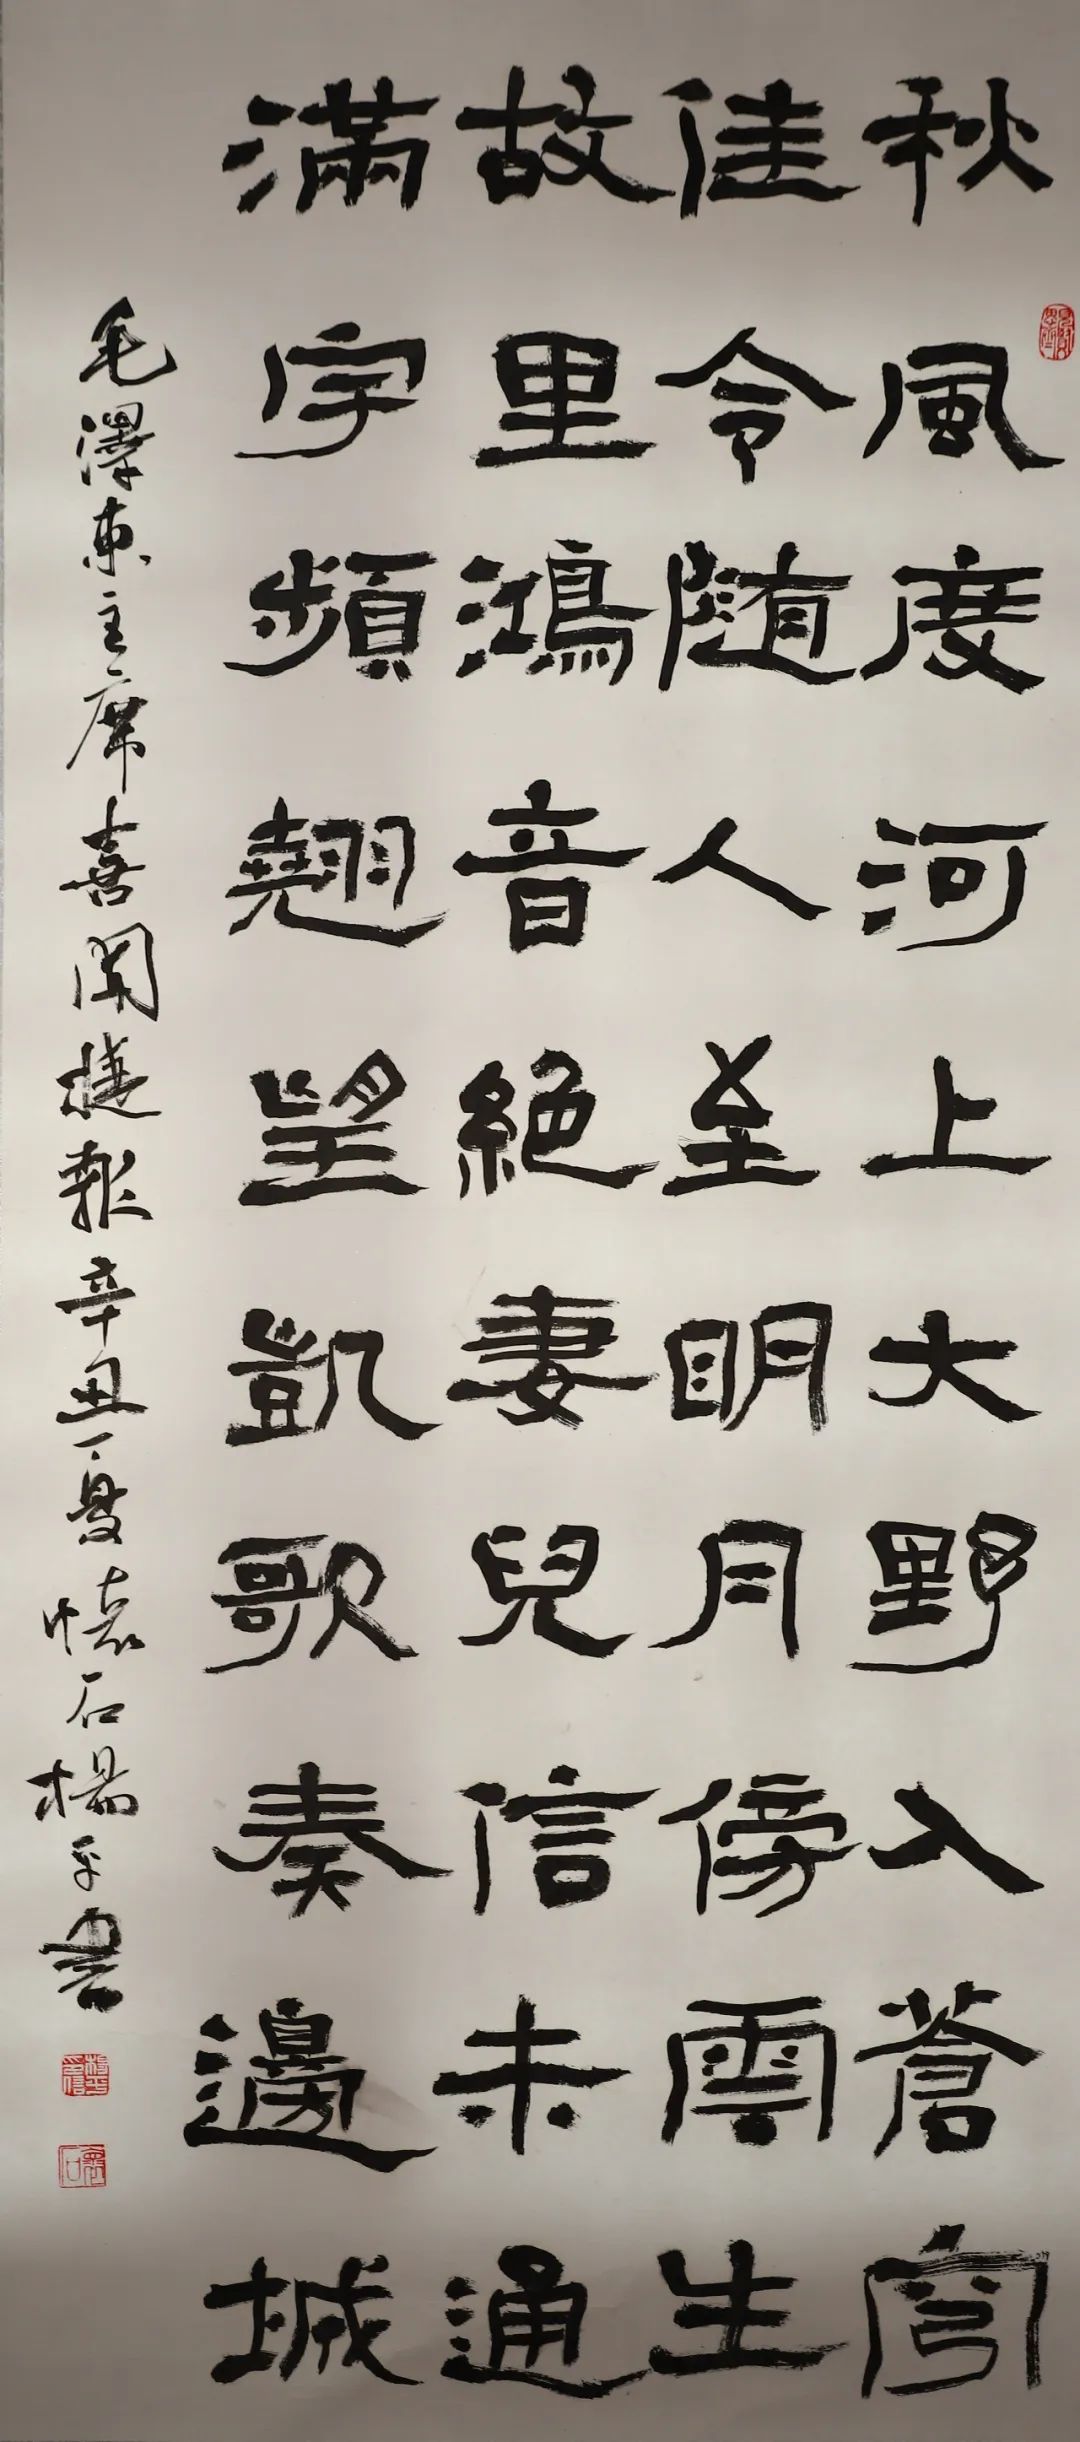 秋風度河上大野入蒼穹
佳令随人至明月傍雲生
故里鴻音絕妻兒信未通
满字頻翹望凱歌奏邊城
毛澤東主席喜聞捷報辛丑夏懷石楊平書